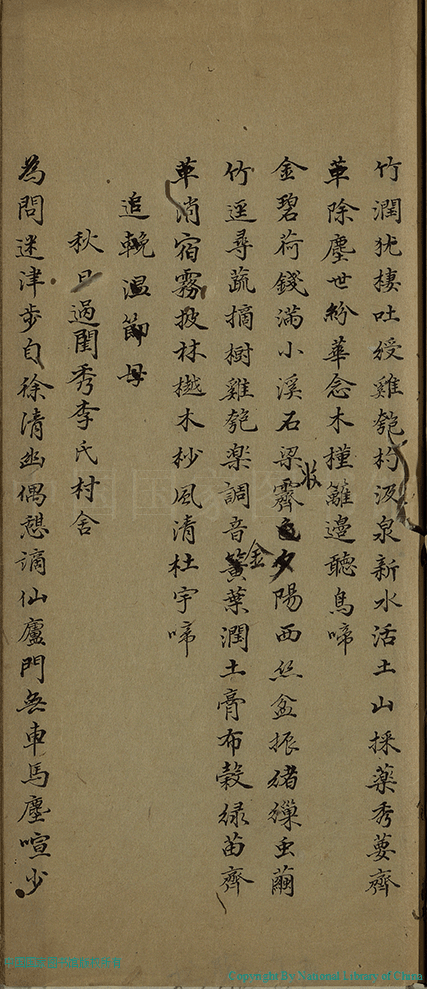 竹潤犹棲吐綬雞匏杓汲泉新水活土山採藥秀葽齊
革除塵世紛華念木槿籬邊聽鳥啼
金碧荷錢滿小溪石梁霽收夕陽西絲盆振緒繅虫繭
竹逕尋蔬摘樹雞匏樂調音金葉潤土膏布穀綠苗齊
革消宿霧披林樾木杪風清杜宇啼
追輓温節母
秋日過閨秀李氏村舍
為問迷津步自徐清幽偶憩謫仙廬門無車馬塵喧少
Copyright By National Library of China